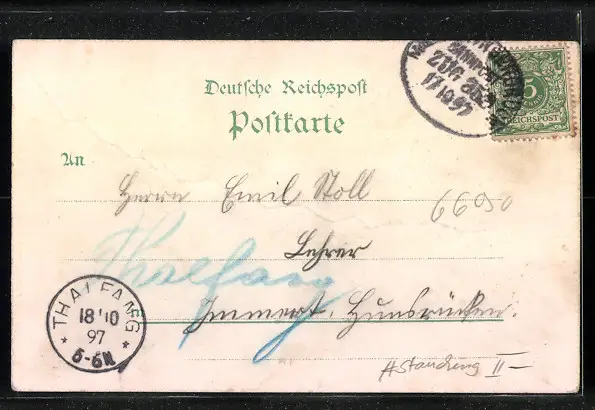 BAHNPOST
ZUG 202
17 10 97
5
REICHSPOST
Deutsche Reichspost
Postkarte
An
Herrn Emil Stoll
66950
Lehrer
Thalfang
Immert. Hunsrücken.
THALFANG
18 10
97
5-6N
II –